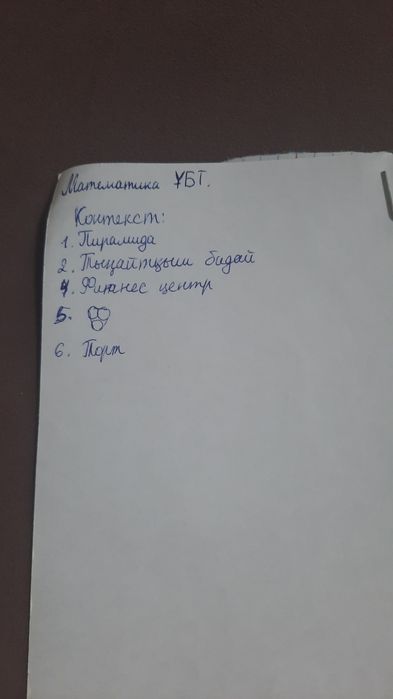 Математика ҰБТ.
Контекст:
1. Пирамида
2. Тыңайтқыш бидай
4. Фитнес центр
5.
6. Торт